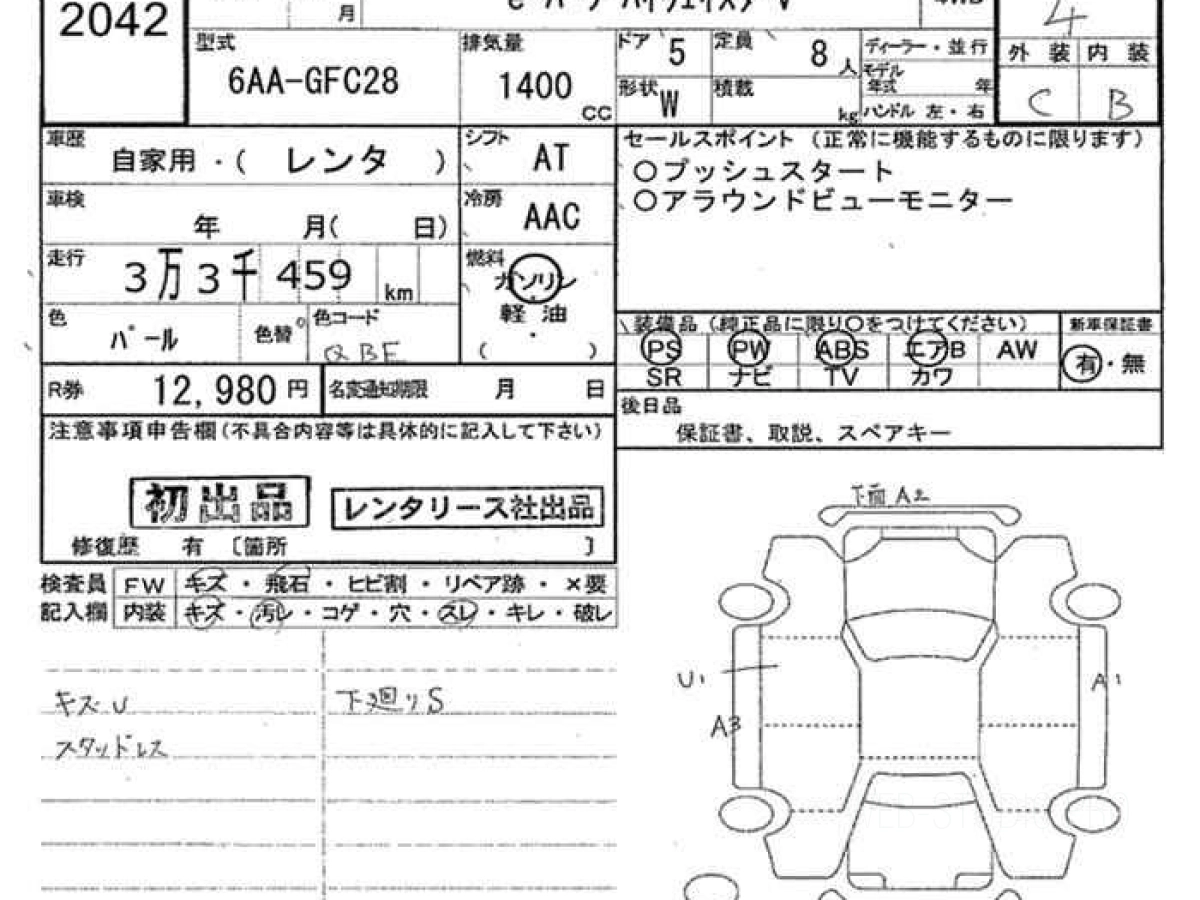 2042
月
e-パワーハイウェイスターV
4WD
4
型式
6AA-GFC28
排気量
1400
CC
ドア
5
定員
8
人
ディーラー・並行
モデル
年式
年
外装
内装
形状
W
積載
kg
ハンドル 左・右
C
B
車歴
自家用・( レンタ )
シフト
AT
セールスポイント (正常に機能するものに限ります)
○プッシュスタート
○アラウンドビューモニター
車検
年 月( 日)
冷房
AAC
走行
3万3千459 km
燃料
ガソリン
軽 油
( ・ )
色
パール
色替
色コード
QBE
装備品 (純正品に限り○をつけてください)
新車保証書
PS PW ABS エアB AW
有・無
SR ナビ TV カワ
R券
12,980円
名変通知期限
月 日
後日品
保証書、取説、スペアキー
注意事項申告欄(不具合内容等は具体的に記入して下さい)
初出品
レンタリース社出品
修復歴 有 〔箇所 〕
下面 A2
検査員
FW
キズ・飛石・ヒビ割・リペア跡・×要
記入欄
内装
キズ・汚レ・コゲ・穴・スレ・キレ・破レ
キズ U
下廻り S
スタッドレス
U1
A1
A3